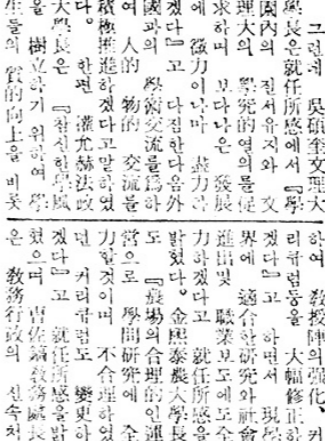 그런데 吳碩奎文理大
學長은就任所感에서『學
園內의 질서유지와 文
理大의 學究的열의를促
求하며 보다나은 發展
에 微力이나마 盡力하
겠다』고 다짐한다음外
國과의 學術交流를爲하
여 人的 物的 交流를
積極推進하겠다고말하였
다。 한편 權尤赫法政
大學長은 『참신한學風
을 樹立하기 위하여 學
生들의 質的向上을 비롯
하여 敎授陣의强化、커
리큐럼등을 大幅修正하
겠다』고 하면서 現學
界에 適合한硏究와社會
進出및 職業보도에도全
力하겠다고 就任所感을
밝혔다。金熙泰農大學長
도 『農場의合理的인運
營으로 學問硏究에 全
力할것이며 不合理하였
던 커리큐럼도 變更하
겠다』고 就任所感을밝
혔으며 曺佐鎬敎務處長
은 敎務行政의 신속처